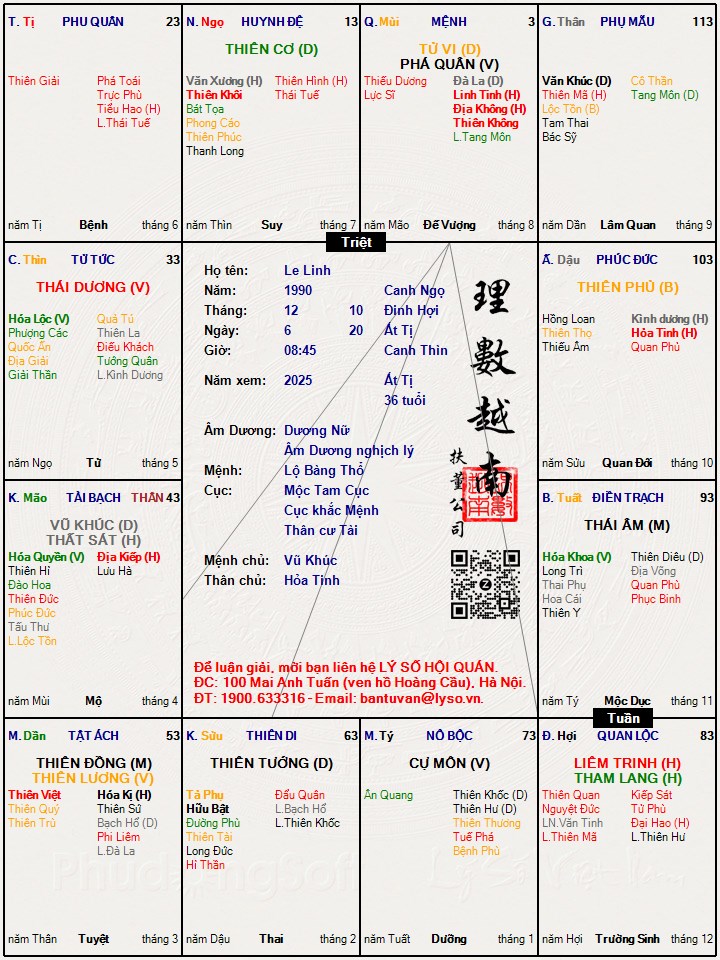 T. Tị PHU QUÂN 23
Thiên Giải
Phá Toái
Trực Phù
Tiểu Hao (H)
L.Thái Tuế
năm Tị Bệnh tháng 6
N. Ngọ HUYNH ĐỆ 13
THIÊN CƠ (D)
Văn Xương (H)
Thiên Khôi
Bát Tọa
Phong Cáo
Thiên Phúc
Thanh Long
Thiên Hình (H)
Thái Tuế
năm Thìn Suy tháng 7
Q. Mùi MỆNH 3
TỬ VI (D)
PHÁ QUÂN (V)
Thiếu Dương
Lực Sĩ
Đà La (D)
Linh Tinh (H)
Địa Không (H)
Thiên Không
L.Tang Môn
năm Mão Đế Vượng tháng 8
G. Thân PHỤ MẪU 113
Văn Khúc (D)
Thiên Mã (H)
Lộc Tồn (B)
Tam Thai
Bác Sỹ
Cô Thần
Tang Môn (D)
năm Dần Lâm Quan tháng 9
Triệt
C. Thìn TỬ TỨC 33
THÁI DƯƠNG (V)
Hóa Lộc (V)
Phượng Các
Quốc Ấn
Địa Giải
Giải Thần
Quả Tú
Thiên La
Điếu Khách
Tướng Quân
L.Kình Dương
năm Ngọ Tử tháng 5
Họ tên: Le Linh
Năm: 1990 Canh Ngọ
Tháng: 12 10 Đinh Hợi
Ngày: 6 20 Ất Tị
Giờ: 08:45 Canh Thìn
Năm xem: 2025 Ất Tị
36 tuổi
Âm Dương: Dương Nữ
Âm Dương nghịch lý
Mệnh: Lộ Bàng Thổ
Cục: Mộc Tam Cục
Cục khắc Mệnh
Thân cư Tài
Mệnh chủ: Vũ Khúc
Thân chủ: Hỏa Tinh
理數越南
扶董公司
Để luận giải, mời bạn liên hệ LÝ SỐ HỘI QUÁN.
ĐC: 100 Mai Anh Tuấn (ven hồ Hoàng Cầu), Hà Nội.
ĐT: 1900.633316 - Email: bantuvan@lyso.vn.
Ấ. Dậu PHÚC ĐỨC 103
THIÊN PHỦ (B)
Hồng Loan
Thiên Thọ
Thiếu Âm
Kình dương (H)
Hỏa Tinh (H)
Quan Phủ
năm Sửu Quan Đới tháng 10
K. Mão TÀI BẠCH THÂN 43
VŨ KHÚC (D)
THẤT SÁT (H)
Hóa Quyền (V)
Thiên Hỉ
Đào Hoa
Thiên Đức
Phúc Đức
Tấu Thư
L.Lộc Tồn
Địa Kiếp (H)
Lưu Hà
năm Mùi Mộ tháng 4
B. Tuất ĐIỀN TRẠCH 93
THÁI ÂM (M)
Hóa Khoa (V)
Long Trì
Thai Phụ
Hoa Cái
Thiên Y
Thiên Diêu (D)
Địa Võng
Quan Phù
Phục Binh
năm Tý Mộc Dục tháng 11
Tuần
M. Dần TẬT ÁCH 53
THIÊN ĐỒNG (M)
THIÊN LƯƠNG (V)
Thiên Việt
Thiên Quý
Thiên Trù
Hóa Kị (H)
Thiên Sứ
Bạch Hổ (D)
Phi Liêm
L.Đà La
năm Thân Tuyệt tháng 3
K. Sửu THIÊN DI 63
THIÊN TƯỚNG (D)
Tả Phụ
Hữu Bật
Đường Phù
Thiên Tài
Long Đức
Hỉ Thần
Đẩu Quân
L.Bạch Hổ
L.Thiên Khốc
năm Dậu Thai tháng 2
M. Tý NÔ BỘC 73
CỰ MÔN (V)
Ân Quang
Thiên Khốc (D)
Thiên Hư (D)
Thiên Thương
Tuế Phá
Bệnh Phù
năm Tuất Dưỡng tháng 1
Đ. Hợi QUAN LỘC 83
LIÊM TRINH (H)
THAM LANG (H)
Thiên Quan
Nguyệt Đức
LN.Văn Tinh
L.Thiên Mã
Kiếp Sát
Tử Phù
Đại Hao (H)
L.Thiên Hư
năm Hợi Trường Sinh tháng 12